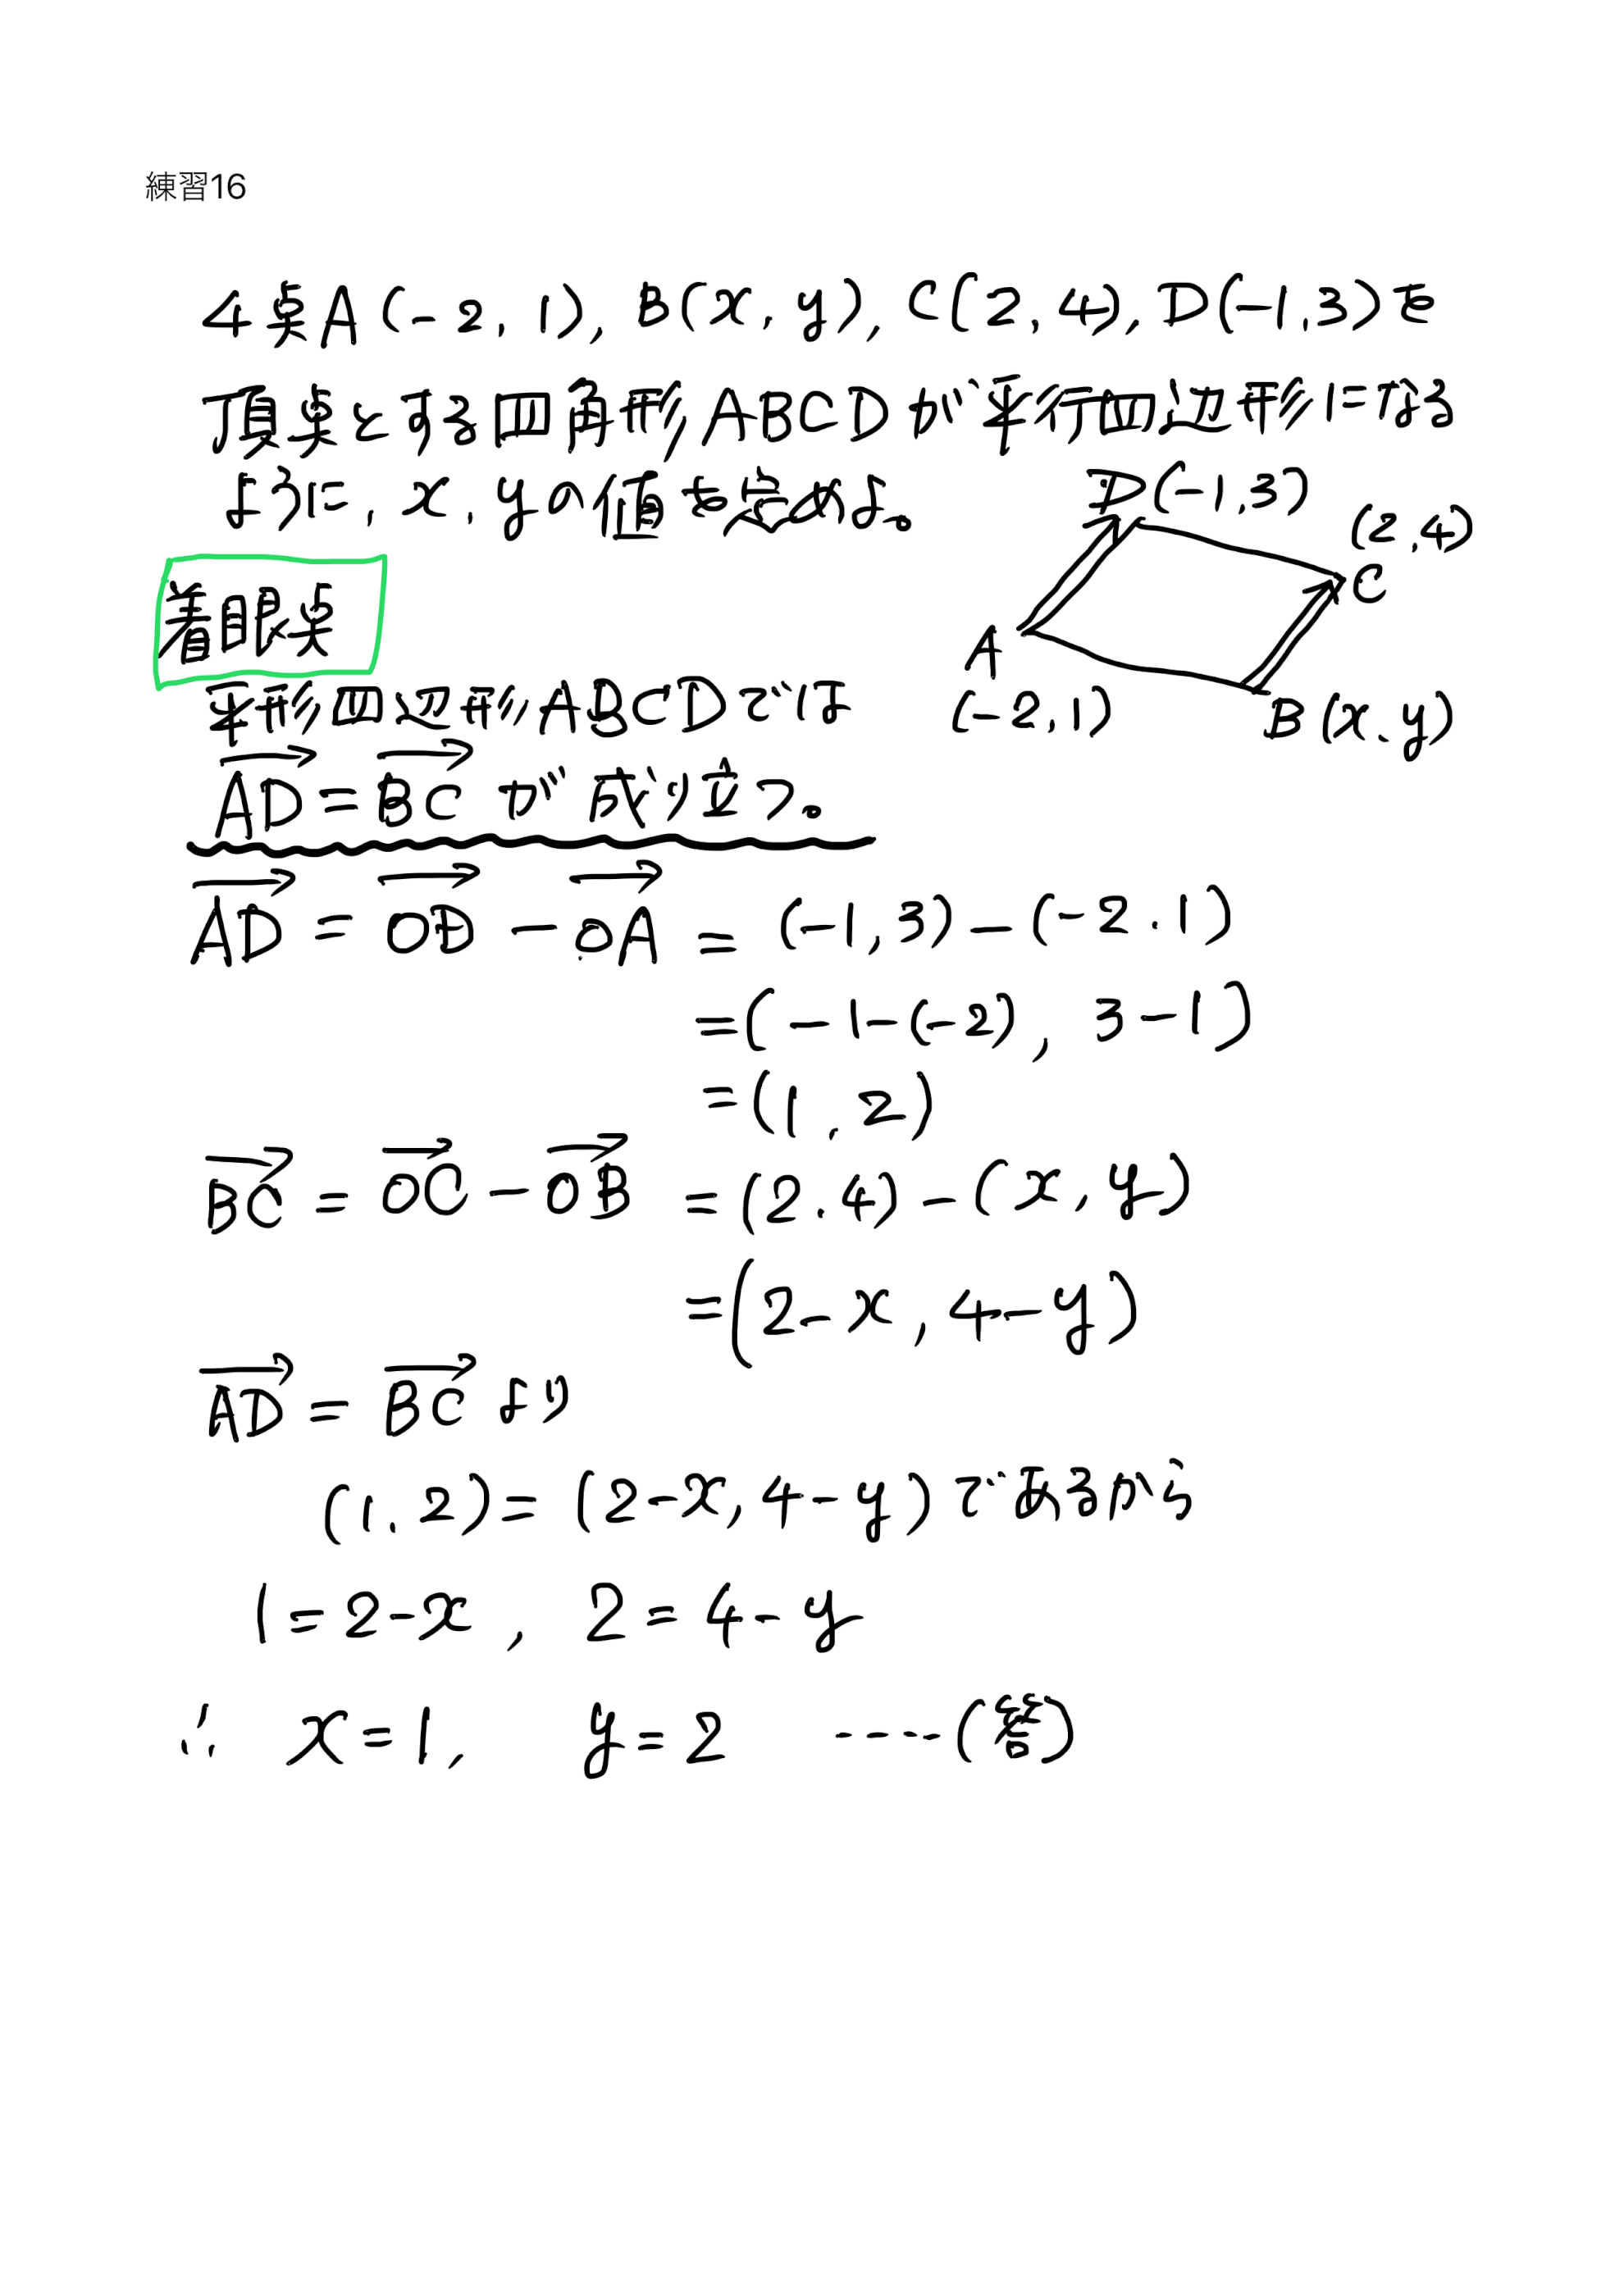 練習16
4点A(-2,1), B(x,y), C(2,4), D(-1,3)を
頂点とする四角形ABCDが平行四辺形になる
ように, x, yの値を定めよ。
D(-1,3)
(2,4)
C
A
(-2,1)
B(x,y)
着眼点
平形四辺形ABCDでは
→AD=→BCが成り立つ。
→AD=→OD-→OA=(-1,3)-(-2,1)
=(-1-(-2), 3-1)
=(1,2)
→BC=→OC-→OB=(2,4)-(x,y)
=(2-x,4-y)
→AD=→BCより
(1,2)=(2-x,4-y)であるから
1=2-x, 2=4-y
∴ x=1, y=2 ----(答)